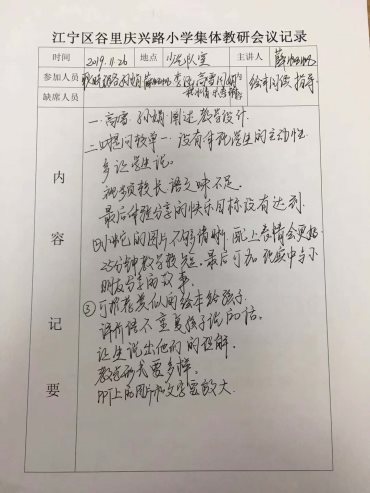 江宁区谷里庆兴路小学集体教研会议记录
时间 2019.11.26 地点 少先队室 主讲人 薛
参加人员 绘本阅读指导
缺席人员
内容记要
一. 高春 孙娟 阐述教学设计.
二. ①提问较单一. 没有体现学生的主动性.
多让学生说.
视频较长 语文味不足.
最后体验分享的快乐目标没有达到.
②小熊的图片不够清晰, 配上表情会更好.
25分钟教学较短, 最后可加现实中与小
朋友分享的故事.
③可推荐类似的绘本给孩子.
评价语不重复孩子说的话.
让生说出他们的理解.
教态形式要多样.
PPT上的图片和文字要放大.